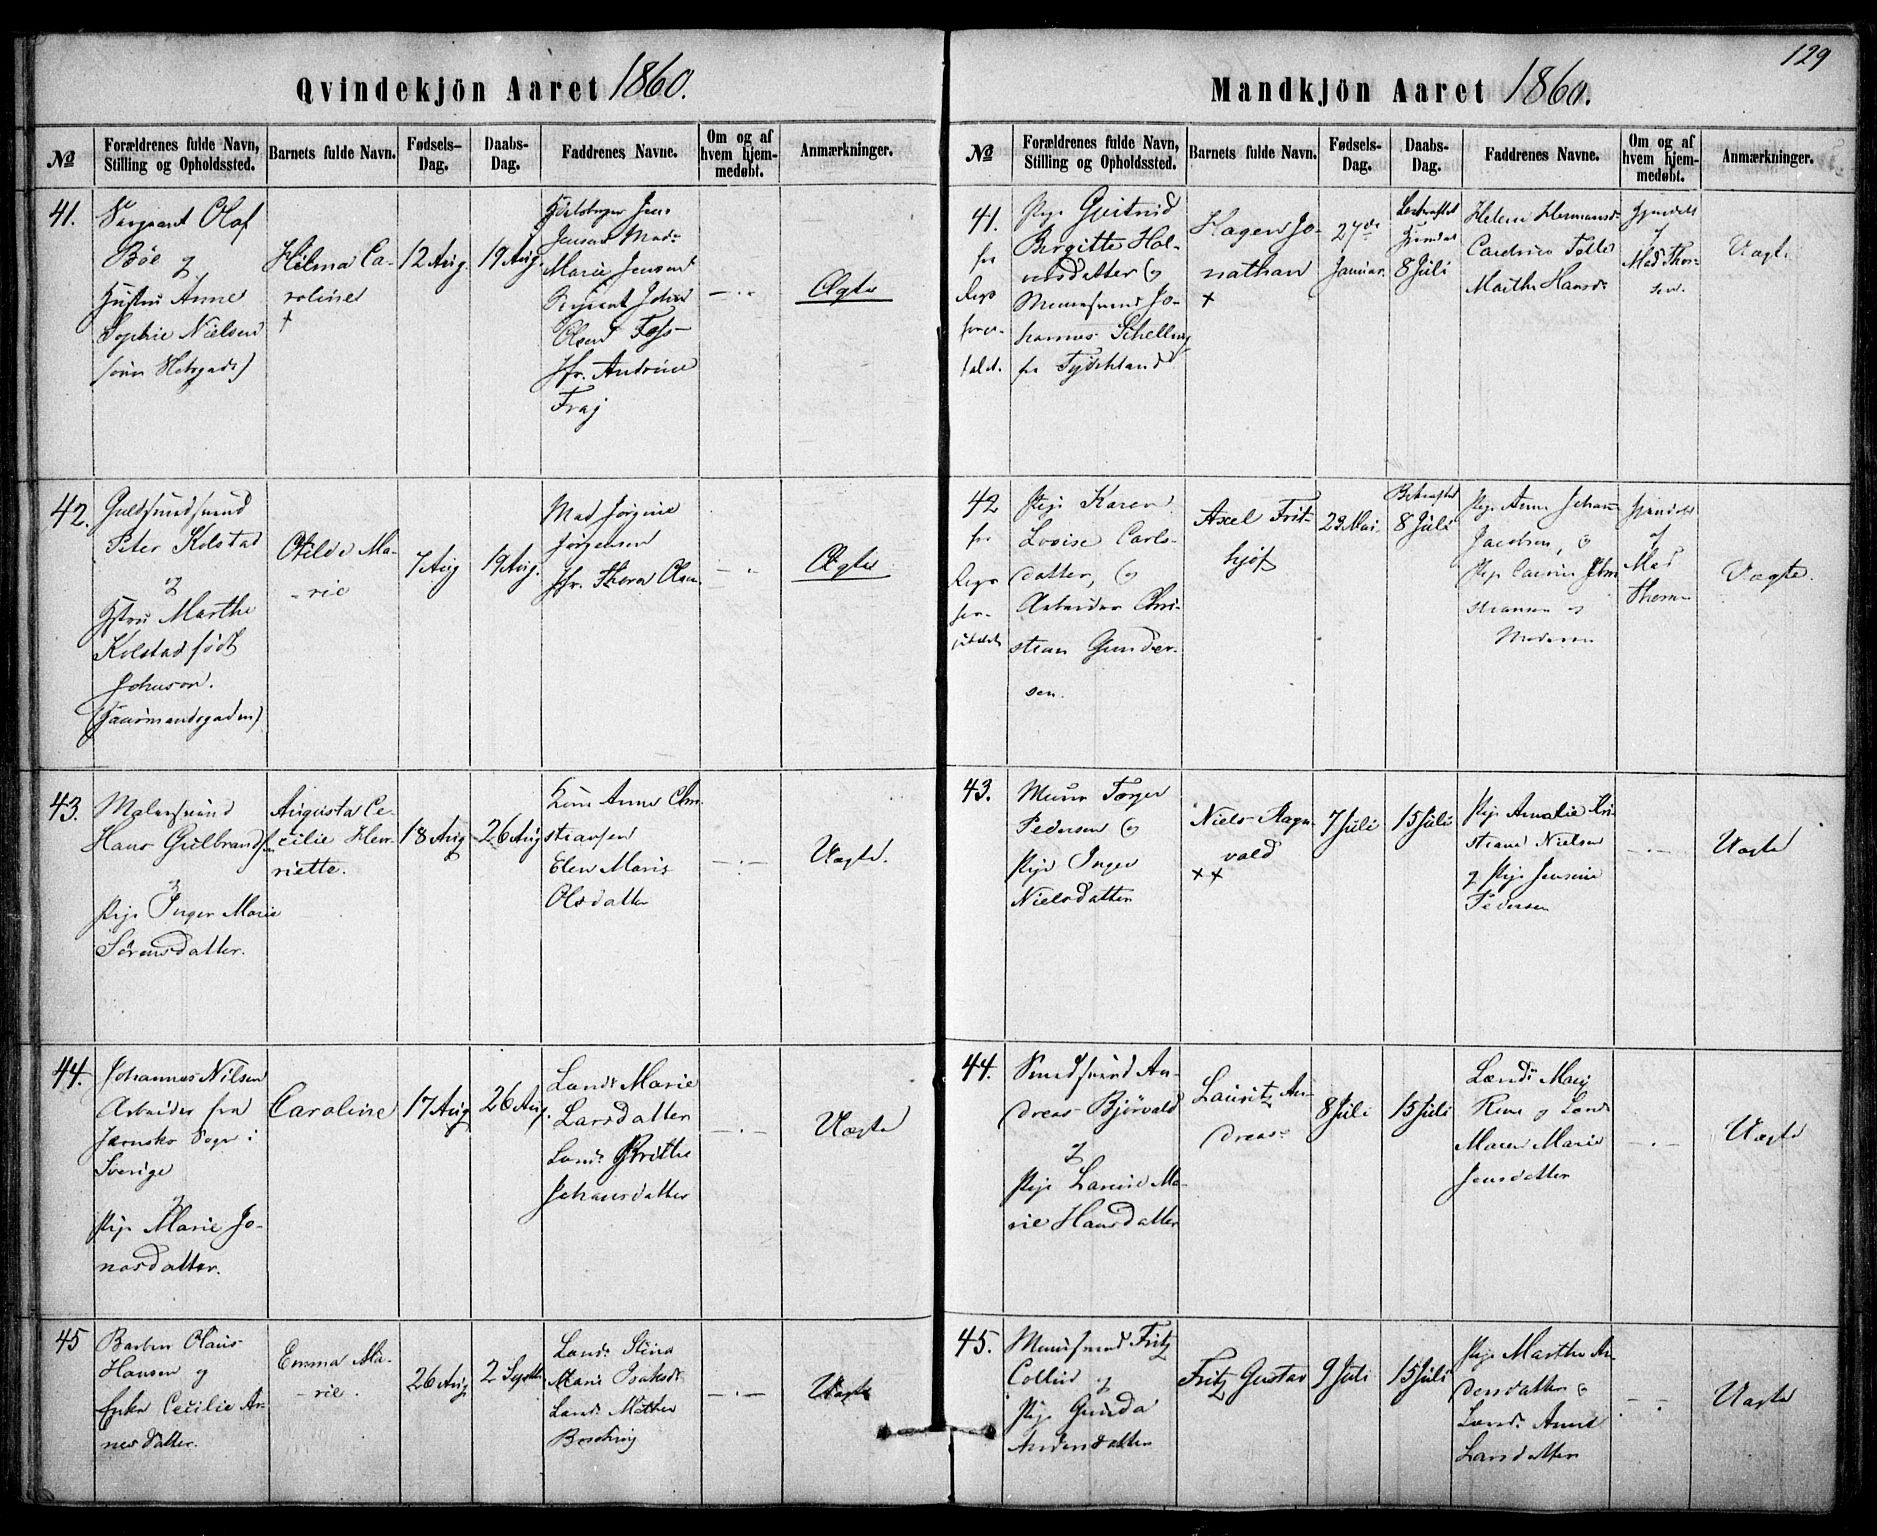 Qvindekjön Aaret 1860.
No
Forældrenes fulde Navn,
Stilling og Opholdssted.
Barnets fulde Navn.
Fødsels-
Dag.
Daabs-
Dag.
Faddrenes Navne.
Om og af
hvem hjem-
medøbt.
Anmærkninger.
41.
Sergeant Olaf
Böe og
Hustru Anne
Sophie Nielsen
Hilma Ca-
roline
+
12 Aug.
19 Aug.
Jens
Jensen Mad:
Marie Jensen
Sergeant Johan
Olsen Foss
Jfr. Andrine
Ægte
42.
Guldsmedsvend
Peter Kolstad
og
Hustru Marthe
Kolstad født
Johnson.
Otilde Ma-
rie
7 Aug
19 Aug.
Mad Jørgine
Jørgensen
Jfr. Thora Olsen
Ægte
43.
Malersvend
Hans Gulbrands
&
Pige Inger Marie
Sørensdatter.
Augusta Ce-
cilie Hen-
riette.
18 Aug
26 Aug
Kone Anne Chri
stiansen
Elen Marie
Olsdatter
Uægte.
44.
Johannes Nilsen
Arbeider fra
Jernsko Sogn i
Sverige
og
Pige Marie Jo-
nasdatter.
Caroline
17 Aug
26 Aug.
Marie
Larsdatter
Brithe
Johansdatter
Uægte
45
Olaus
Hansen og
Enke Cecilie Ar-
nesdatter.
Emma Ma-
rie.
26 Aug
2 Septbr
Stina
Marie Isaksd:
Mathea
Uægte
129
Mandkjön Aaret 1860.
No
Forældrenes fulde Navn,
Stilling og Opholdssted.
Barnets fulde Navn.
Fødsels-
Dag.
Daabs-
Dag.
Faddrenes Navne.
Om og af
hvem hjem-
medøbt.
Anmærkninger.
41.
fra
Pige Gjertrud
Birgitte Hal-
vorsdatter og
Muursvend Jo-
hannes Schelling
fra Tydskland
Hagen Jo-
nathan
+
27de
Januar.
Bekræftet
8 Juli
Helene Hermansd:
Marthe Hansd:
Hjemdøbt
af
Mad Thor-
sen.
Uægte
42
fra
Pige Karen
Lovise Carls-
datter, og
Arbeider Chri-
stian Gunder-
sen.
Axel Frit-
hjof
23 Mai.
Bekræftet
8 Juli
Pige Anne Johan
Jacobsen, og
Pige
Hjemdøbt
af
Mad
Uægte.
43.
Muurs Torger
Pedersen og
Pige Inger
Nielsdatter
Niels Ragn-
vald
++
7 Juli
15 Juli
Pige Amalie Kri-
stiane Nielsen
og Pige Jensine
Pedersen
Uægte
44.
Smedsvend An-
dreas Bjørvald
og
Pige Laurine Ma-
rie Hansdatter
Lauritz An-
dreas
8 Juli
15 Juli
Maren Marie
Jensdatter
Uægte
45.
Muursvend Fritz
Collin og
Pige Gunda
Andersdatter
Fritz Gustav
9 Juli
15 Juli
Pige Marthe An-
dersdatter og
Anne
Larsdatter
Uægte